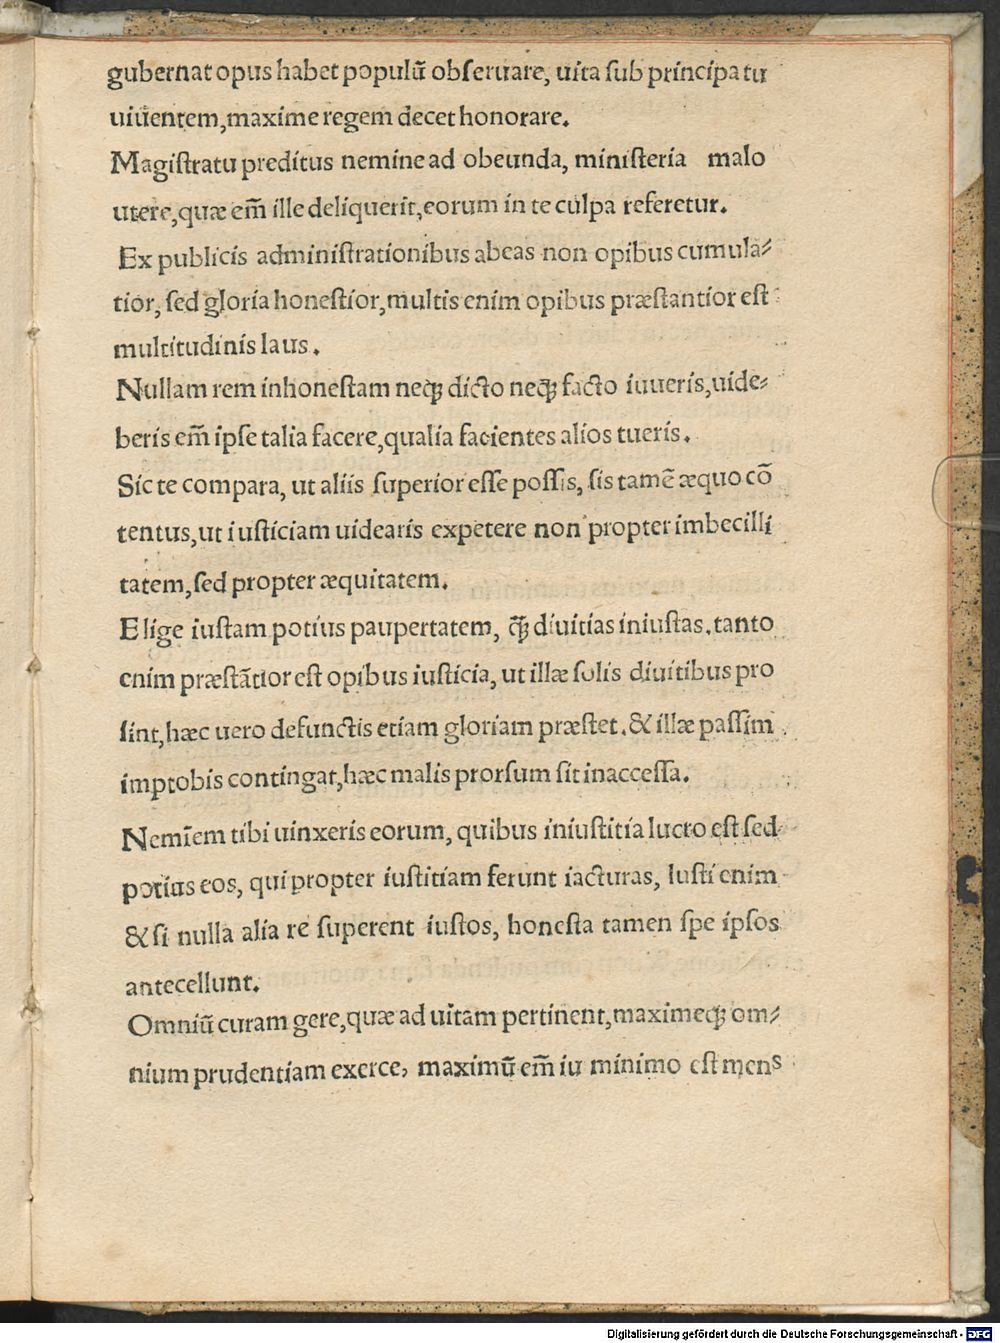 gubernat opus habet populū obſeruare, uita ſub principatu
uiuentem,maxime regem decet honorare.
Magiſtratu preditus nemine ad obeunda, miniſteria malo
utere,quæ em̄ ille deliquerit,eorum in te culpa referetur.
Ex publicis adminiſtrationibus abeas non opibus cumula⸗
tior, ſed gloria honeſtior,multis enim opibus præſtantior eſt
multitudinis laus.
Nullam rem inhoneſtam neqꝫ dicto neqꝫ facto iuueris,uide⸗
beris em̄ ipſe talia facere,qualia facientes alios tueris.
Sic te compara, ut aliis ſuperior eſſe poſſis, ſis tamē æquo cō
tentus,ut iuſticiam uidearis expetere non propter imbecilli
tatem,ſed propter æquitatem.
Elige iuſtam potius paupertatem, q̄ꝫ diuitias iniuſtas.tanto
enim præſtātior eſt opibus iuſticia, ut illæ ſolis diuitibus pro
ſint,hæc uero defunctis etiam gloriam præſtet.& illæ paſſim
improbis contingat,hæc malis prorſum ſit inacceſſa.
Nemīem tibi uinxeris eorum, quibus iniuſtitia lucro eſt ſed
potius eos, qui propter iuſtitiam ferunt iacturas, Iuſti enim
& ſi nulla alia re ſuperent iuſtos, honeſta tamen ſpe ipſos
antecellunt.
Omniū curam gere,quæ ad uitam pertinent,maximeqꝫ om⸗
nium prudentiam exerce, maximū em̄ iu minimo eſt mens
Digitalisierung gefördert durch die Deutsche Forschungsgemeinschaft - DFG